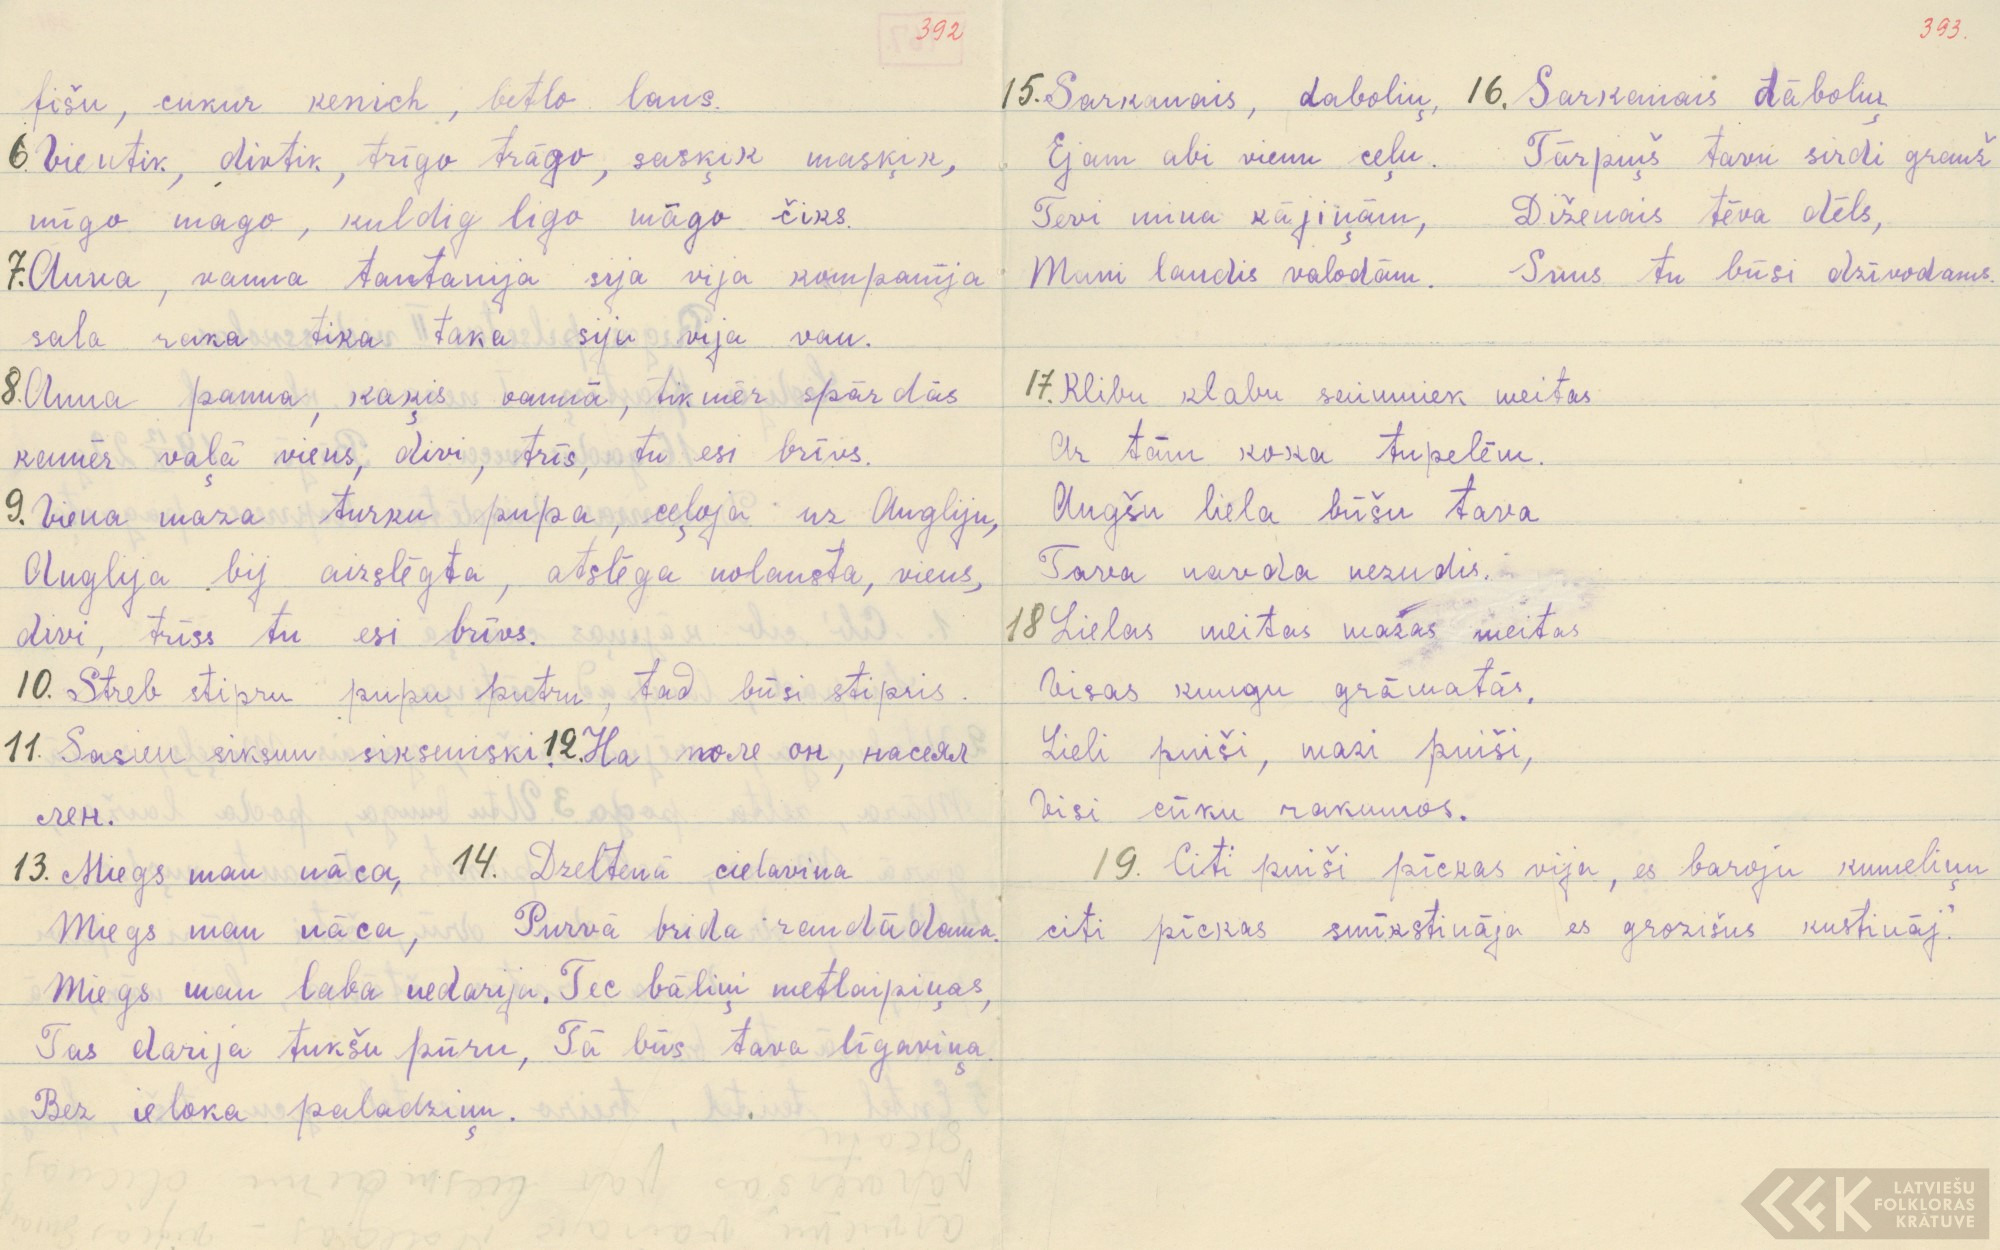 392
fišu, cukur kenich, betlo laus.
6. Vientik, divtik, trīgo trāgo, sasķiķ masķiķ,
mīgo mago, kuldig ligo māgo čiks.
7. Anva, vanna tantanija sija vija kompanija
sala raka tika taka siju vija vau.
8. Anna panna, kaķis vannā, tikmēr spārdās
kamēr vaļā viens, divi, trīs, tu esi brīvs.
9. Viena maza turku pupa, ceļoja uz Angliju,
Anglija bij aizslēgta, atslēga nolausta, viens,
divi, trīss tu esi brīvs.
10. Streb stipru pupu putru, tad būsi stipris.
11. Sasien siksnu siksniņski. 12. На поле он, насеял
лен.
13. Miegs man nāca,
Miegs man nāca,
Miegs man laba nedarija.
Tas darija tukšu pūru,
Bez ieloka paladziņu.
14. Dzeltenā cielaviņa
Purvā brida raudādama.
Tec bāliņi metlaipiņas,
Tā būs tava līgaviņa.
393.
15. Sarkanais, daboliņ,
Ejam abi vienu ceļu.
Tevi mina kājiņām,
Mani laudis valodām.
16. Sarkanais dāboliņ
Tārpiņš tavu sirdi grauž
Diženais tēva dēls,
Smus tu būsi dzīvodams.
17. Klibu klabu saimniek meitas
Ar tām koka tupelēm.
Augšu liela būšu tava
Tava nauda nezudis.
18 Lielas meitas mazas meitas
Visas kungu grāmatās,
Lieli puiši, mazi puiši,
Visi cūku rakumos.
19. Citi puiši pīckas vija, es baroju kumeliņu
citi pīckas smīkstināja es grozišus kustināj.'
LATVIEŠU
FOLKLORAS
KRĀTUVE